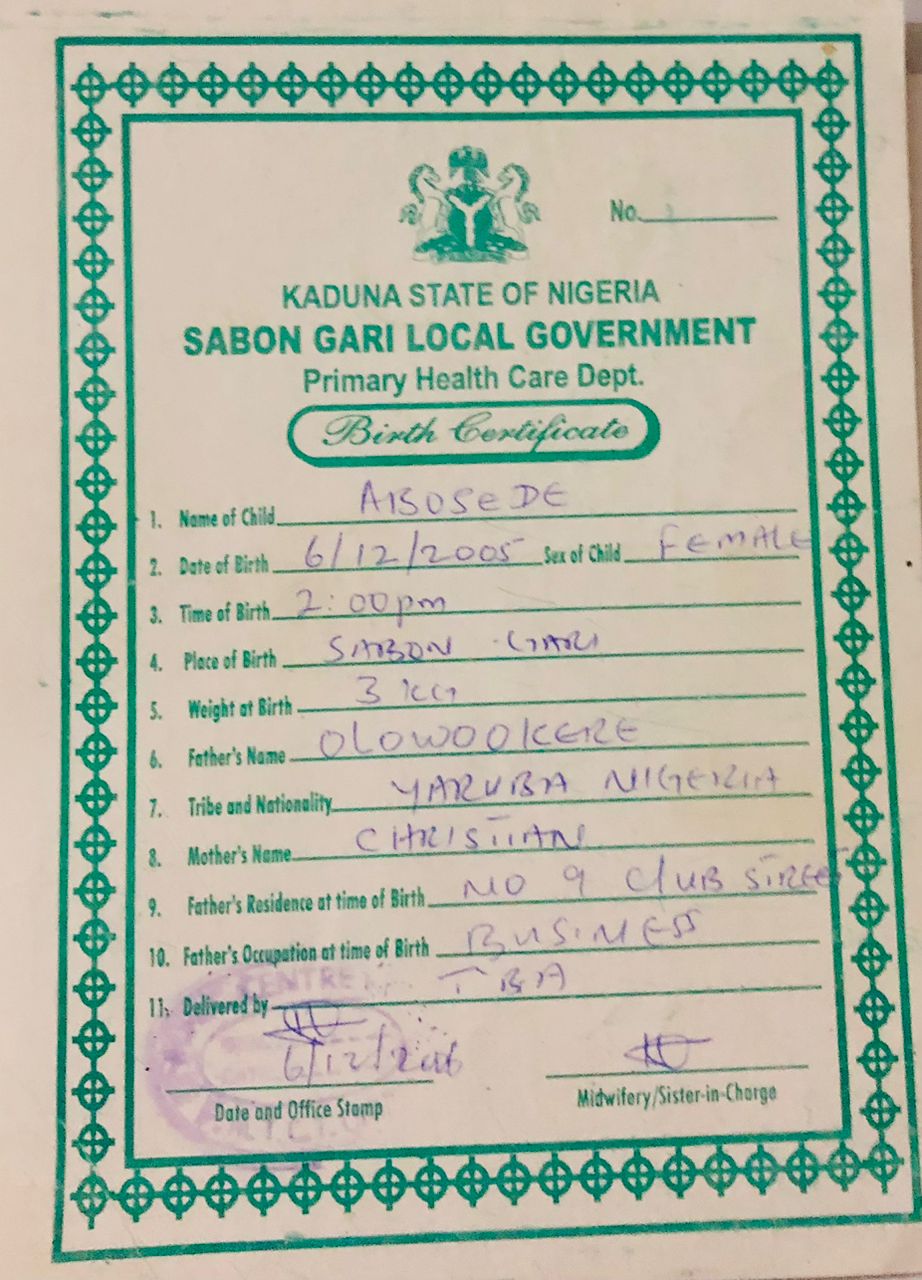 No.
KADUNA STATE OF NIGERIA
SABON GARI LOCAL GOVERNMENT
Primary Health Care Dept.
Birth Certificate
1. Name of Child ABOSEDE
2. Date of Birth 6/12/2005 Sex of Child FEMALE
3. Time of Birth 2:00pm
4. Place of Birth SABON GARI
5. Weight at Birth 3 KG
6. Father's Name OLOWOOKERE
7. Tribe and Nationality YARUBA NIGERIA
8. Mother's Name CHRISTIAN
9. Father's Residence at time of Birth NO 9 Club STREET
10. Father's Occupation at time of Birth BUSINESS
11. Delivered by TBA
CENTRE
6/12/
Date and Office Stamp
Midwifery/Sister-in-Charge